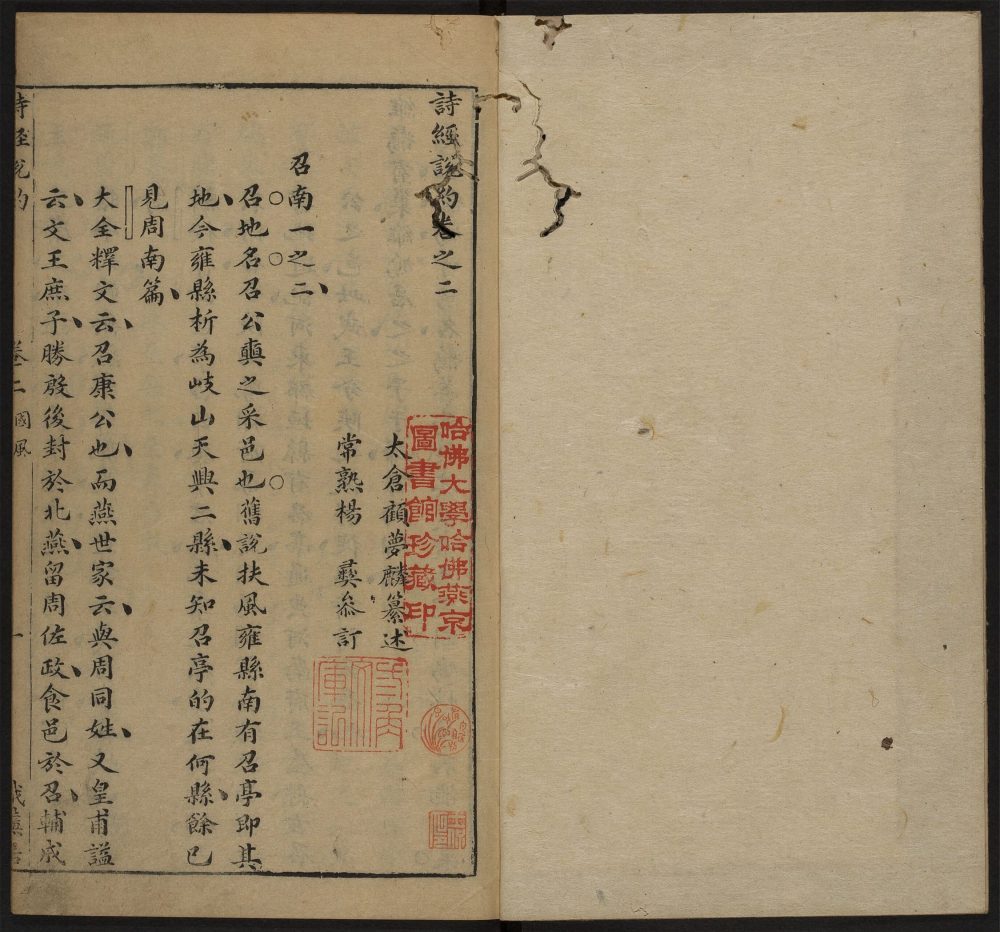 詩經說約卷之二
太倉顧夢麟纂述
常熟楊彝叅訂
召南一之二
召地名召公奭之采邑也舊說扶風雍縣南有召亭即其
地今雍縣析為岐山天興二縣未知召亭的在何縣餘已
見周南篇
大全釋文云召康公也而燕世家云與周同姓又皇甫謐
云文王庶子勝殷後封於北燕留周佐政食邑於召輔成
詩經說約
卷二國風
一
哈佛大學哈佛燕京
圖書館珍藏印